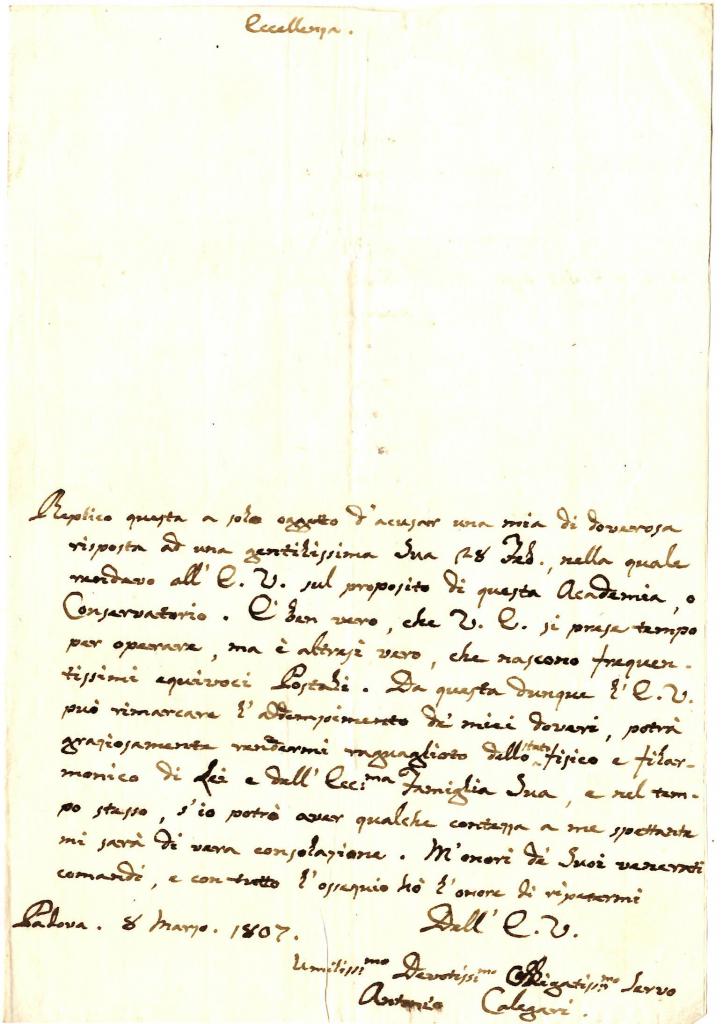 Eccellenza.
Replico questa a solo oggetto d'acusar una mia di doverosa
risposta ad una gentilissima Sua 28 Feb., nella quale
rendavo all' E. V. sul proposito di questa Academia, o
Conservatorio. E' ben vero, che V. E. si prese tempo
per operare, ma è altresì vero, che nascono frequen-
tissimi equivoci Postali. Da questa dunque l' E. V.
può rimarcare l'addempimento de' miei doveri, potrà
graziosamente rendermi raguagliato dello stato fisico e filar-
monico di Lei e dell' Ecc:ma Famiglia Sua, e nel tem-
po stesso, s'io potrò aver qualche contezza a me spettante
mi sarà di vera consolazione. M'onori de' Suoi venerati
comandi, e con tutto l'ossequio hò l'onore di ripetermi
Dell' E. V.
Padova. 8 Marzo. 1807.
Umiliss:mo Devotiss:mo Obbligatiss:mo Servo
Antonio Calegari.